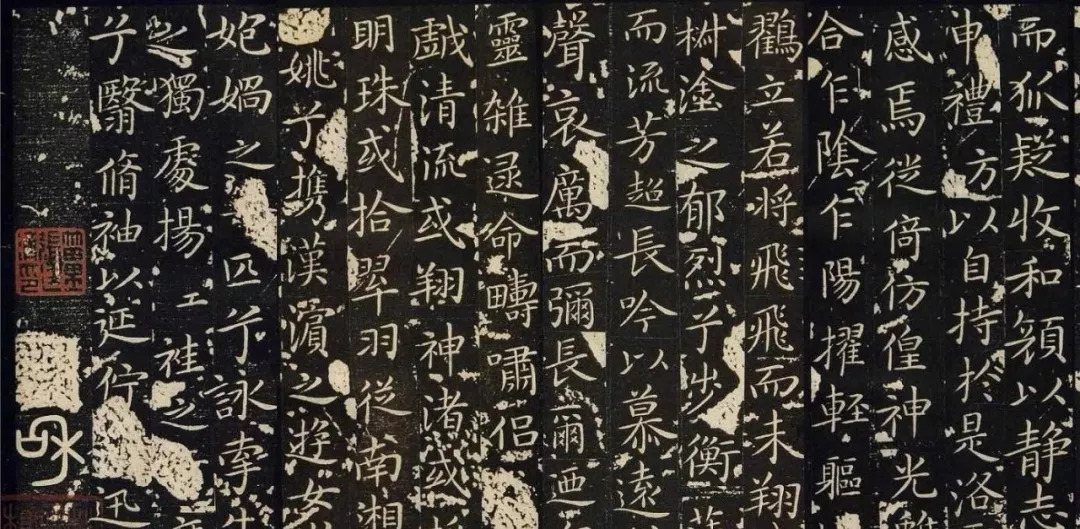 而狐疑收和顏以静志
申禮方以自持於是洛
感焉徙倚仿偟神光
合乍陰乍陽擢輕軀
鶴立若將飛飛而未翔
樹塗之郁烈兮步衡
而流芳超長吟以慕遠
聲哀厲而彌長爾迺
靈雜遝命疇嘯侶
戲清流或翔神渚或
明珠或拾翠羽從南湘
姚兮攜漢濱之遊女
媧之匹兮詠牽牛
之獨處揚袿之
兮翳脩袖以延佇迅